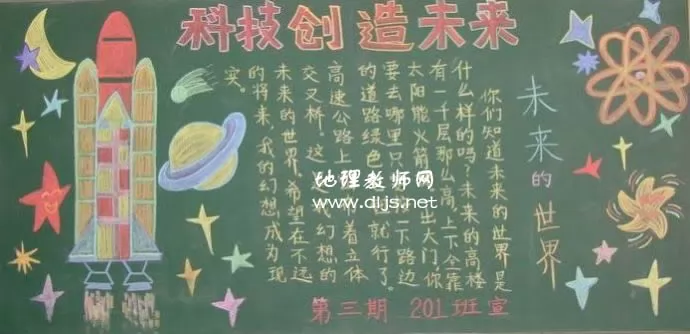 科技创造未来
未来的世界
你们知道未来的世界是
什么样的吗？未来的高楼
有一千层那么高，上下全靠
太阳能火箭出大门，你
要去哪里只一下路边
的道路绿色就行了。
高速公路上着立体
交叉桥。这我幻想的
未来的世界，希望在不远
的将来，我的幻想成为现
实。
地理教师网
www.dljs.net
第三期 201班宣